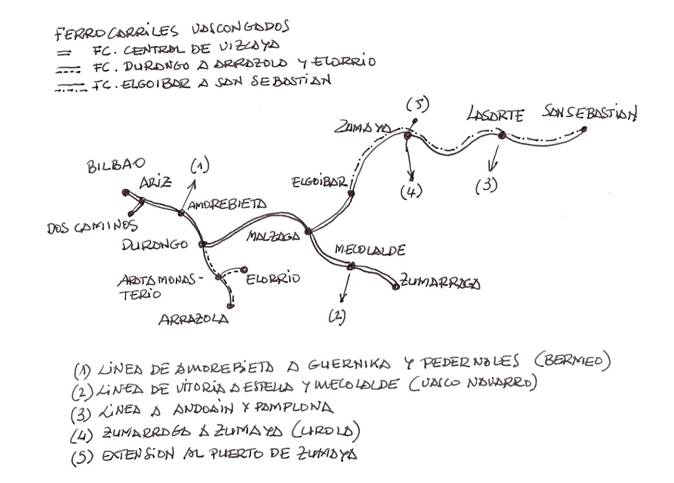 FERROCARRILES VASCONGADOS
FC. CENTRAL DE VIZCAYA
FC. DURANGO A ARRAZOLA Y ELORRIO
FC. ELGOIBAR A SAN SEBASTIAN
(5)
ZUMAYA
LASARTE
SAN SEBASTIAN
BILBAO
ARIZ
(1)
ELGOIBAR
(4)
(3)
AMOREBIETA
DOS CAMINOS
DURANGO
MALZAGA
MECOLALDE
APATAMONAS-
TERIO
ELORRIO
ZUMARRAGA
ARRAZOLA
(2)
(1) LINEA DE AMOREBIETA A GUERNIKA Y PEDERNALES (BERMEO)
(2) LINEA DE VITORIA A ESTELLA Y MECOLALDE (VASCO NAVARRO)
(3) LINEA A ANDOAIN Y PAMPLONA
(4) ZUMARRAGA A ZUMAYA (UROLA)
(5) EXTENSION AL PUERTO DE ZUMAYA